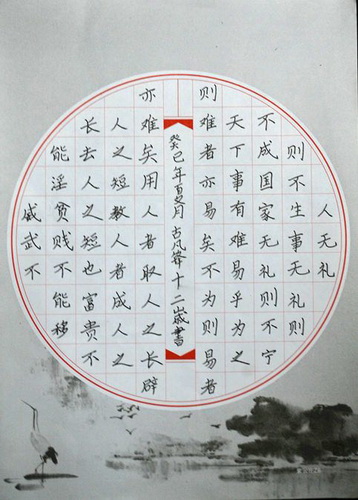 人无礼
则不生事无礼则
不成国家无礼则不宁
天下事有难易乎为之
则难者亦易矣不为则易者
癸巳年夏月古风十二歲書
亦难矣用人者取人之长辟
人之短教人者成人之
长去人之短也富贵不
能淫贫贱不能移
威武不